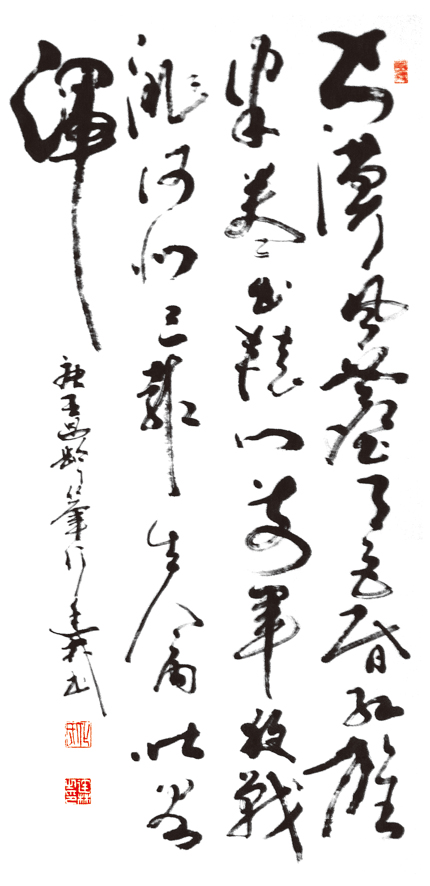 大漠風塵日色昏紅旗
半卷出轅門前軍夜戰
洮河北已報生擒吐谷
渾
唐王昌齡從軍行